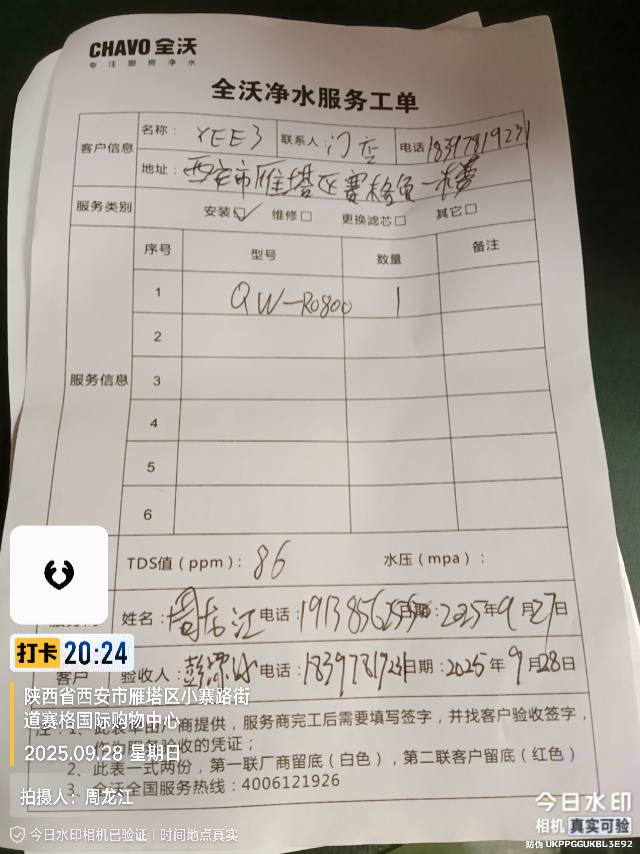 CHAVO 全沃
专 注 厨 房 净 水
全沃净水服务工单
客户信息 名称： YEE3 联系人 门店 电话 18397819231
地址： 西安市雁塔区赛格负一楼
服务类别 安装☑ 维修□ 更换滤芯□ 其它□
服务信息 序号 型号 数量 备注
1 QW-RO800 1
2
3
4
5
6
TDS值（ppm）：86 水压（mpa）：
姓名： 周龙江 电话：日期：2025年9月27日
客户 验收人： 电话：18397819231 日期：2025年9月28日
注：1、此表单由厂商提供，服务商完工后需要填写签字，并找客户验收签字，
验收的凭证；
2、此表一式两份，第一联厂商留底（白色），第二联客户留底（红色）
3、全沃全国服务热线：4006121926
打卡 20:24
陕西省西安市雁塔区小寨路街
道赛格国际购物中心
2025.09.28 星期日
拍摄人：周龙江
今日水印相机已验证｜时间地点真实
今日水印
相机 真实可验
防伪 UKPPGGUKBL3E92